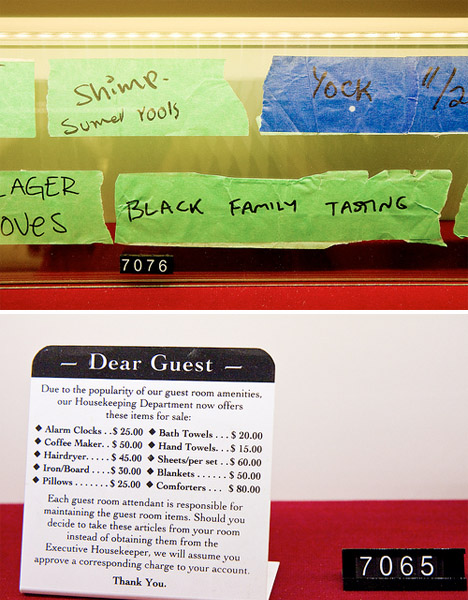 Shimp.
Sumer Yools
YOCK "/2
LAGER
OVES
BLACK FAMILY TASTING
7076
— Dear Guest —
Due to the popularity of our guest room amenities,
our Housekeeping Department now offers
these items for sale:
◆ Alarm Clocks . . $ 25.00 ◆ Bath Towels . . . $ 20.00
◆ Coffee Maker. . $ 50.00 ◆ Hand Towels. . . $ 15.00
◆ Hairdryer. . . . . $ 45.00 ◆ Sheets/per set . . $ 60.00
◆ Iron/Board . . . . $ 30.00 ◆ Blankets . . . . . . $ 50.00
◆ Pillows . . . . . . . $ 25.00 ◆ Comforters . . . $ 80.00
Each guest room attendant is responsible for
maintaining the guest room items. Should you
decide to take these articles from your room
instead of obtaining them from the
Executive Housekeeper, we will assume you
approve a corresponding charge to your account.
Thank You.
7065